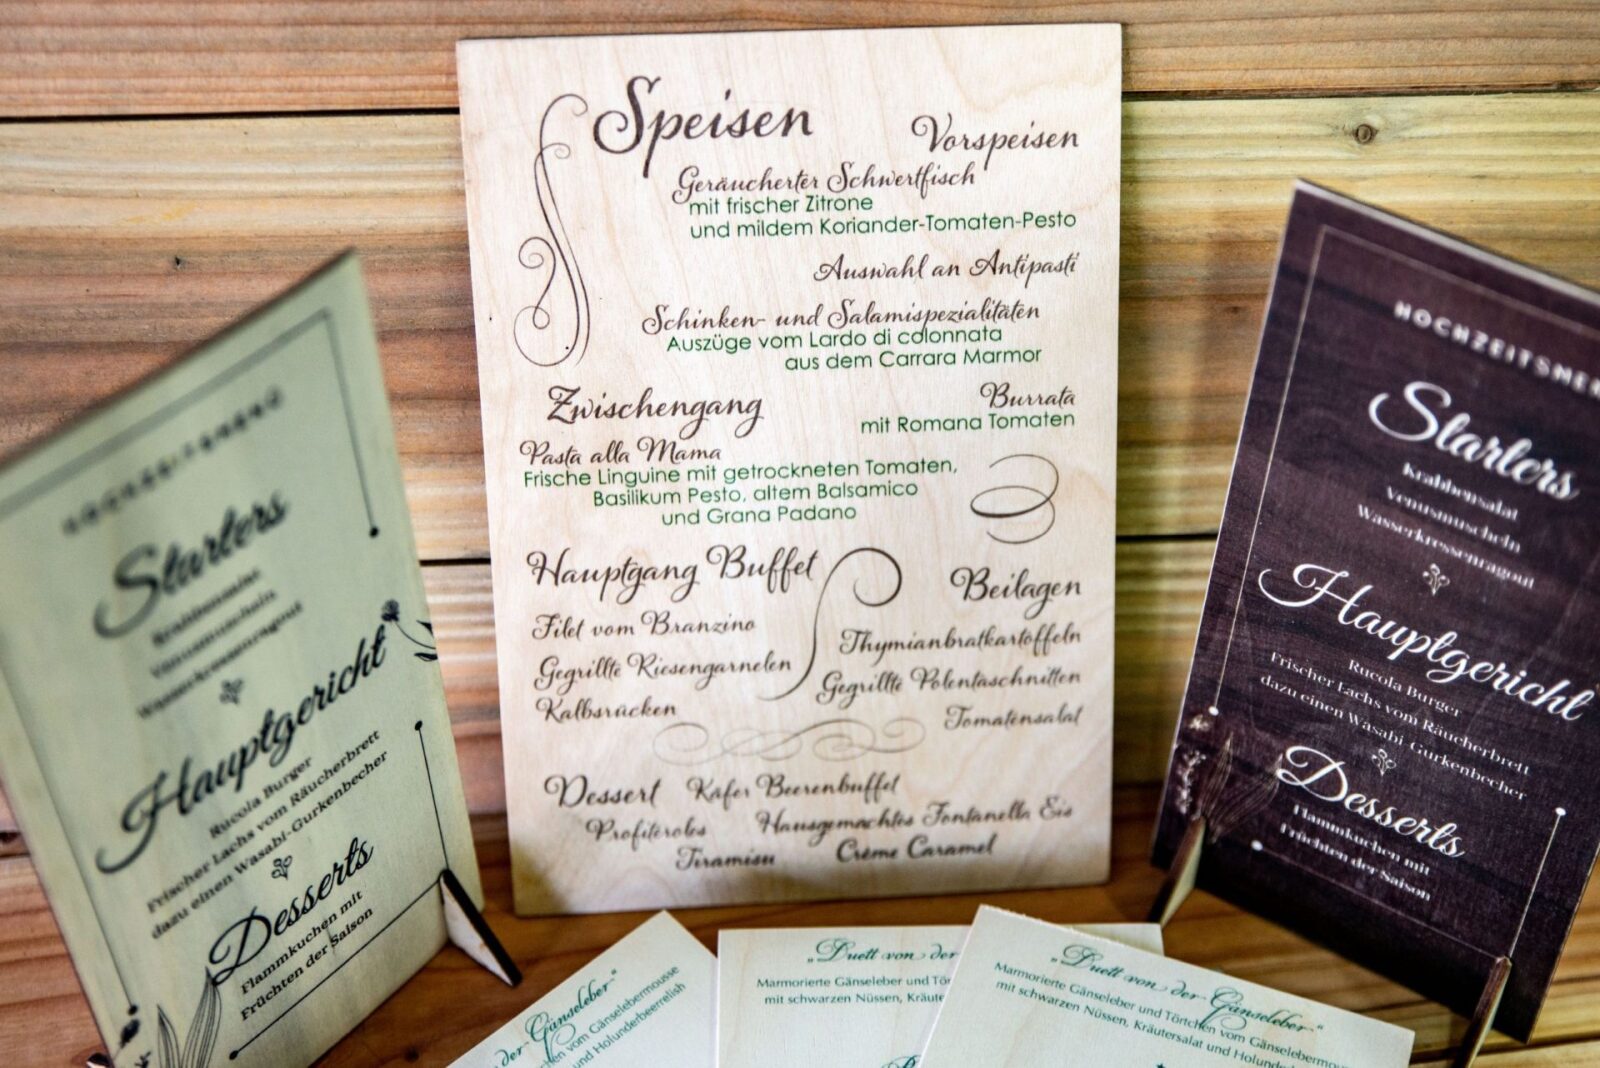 Speisen
Vorspeisen
Geräucherter Schwertfisch
mit frischer Zitrone
und mildem Koriander-Tomaten-Pesto
Auswahl an Antipasti
Schinken- und Salamispezialitäten
Auszüge vom Lardo di colonnata
aus dem Carrara Marmor
Burrata
mit Romana Tomaten
Zwischengang
Pasta alla Mama
Frische Linguine mit getrockneten Tomaten,
Basilikum Pesto, altem Balsamico
und Grana Padano
Hauptgang Buffet
Filet vom Branzino
Gegrillte Riesengarnelen
Kalbsrücken
Beilagen
Thymianbratkartoffeln
Gegrillte Polentaschnitten
Tomatensalat
Dessert
Käfer Beerenbuffet
Profiteroles
Hausgemachtes Fontanella Eis
Tiramisu
Crème Caramel
Starters
Krabbensalat
Venusmuscheln
Wasserkressenragout
Hauptgericht
Rucola Burger
Frischer Lachs vom Räucherbrett
dazu einen Wasabi-Gurkenbecher
Desserts
Flammkuchen mit
Früchten der Saison
HOCHZEITSME
Starters
Krabbensalat
Venusmuscheln
Wasserkressenragout
Hauptgericht
Rucola Burger
Frischer Lachs vom Räucherbrett
dazu einen Wasabi-Gurkenbecher
Desserts
Flammkuchen mit
Früchten der Saison
der Gänseleber“
chen vom Gänselebermousse
und Holunderbeerrelish
„Duett von der
Marmorierte Gänseleber und Tört
mit schwarzen Nüssen, Kräute
„Duett von der Gänseleber“
Marmorierte Gänseleber und Törtchen vom Gänselebermou
mit schwarzen Nüssen, Kräutersalat und Holund